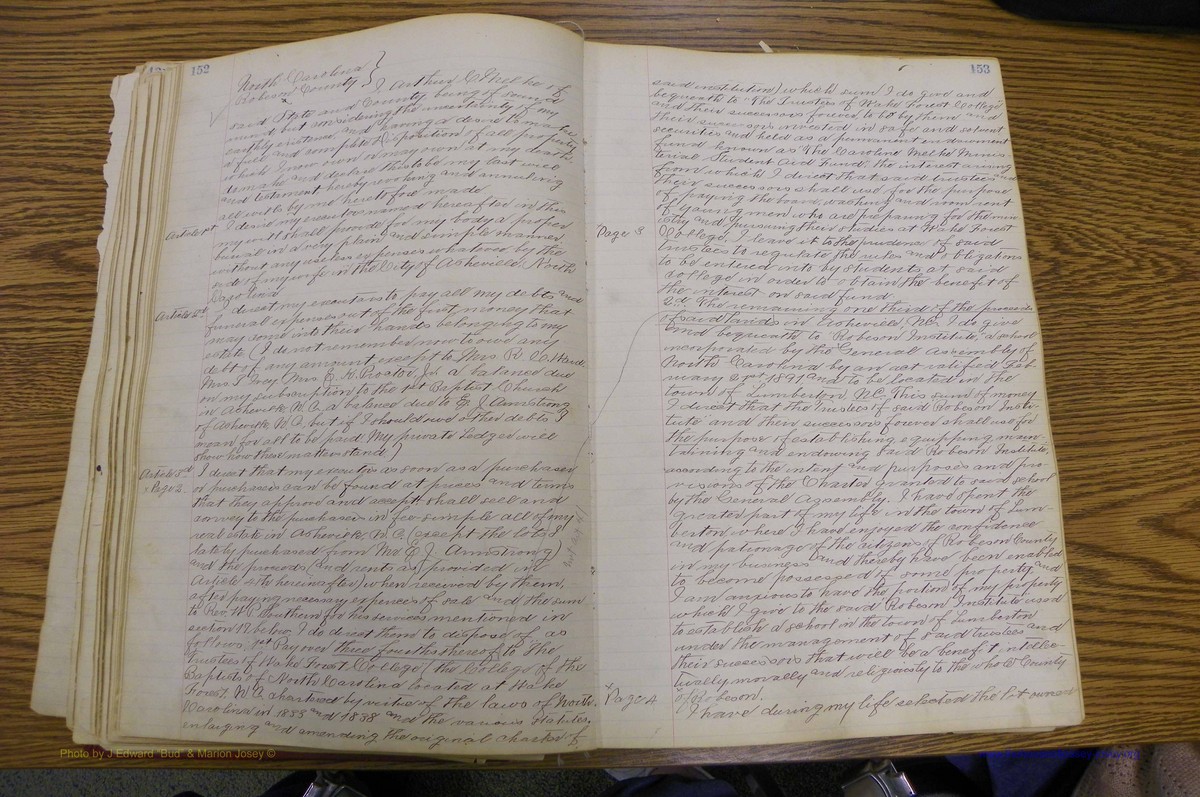 152
North Carolina }
Robeson County } I Arthur C Melke of
said State and County being of sound
mind but considering the uncertainty of my
earthly existence and having a desire to make
a full and complete disposition of all property
which I now own or may own at my death
to make and declare this to be my last will
and testament hereby revoking and annulling
all wills by me heretofore made
Article 1st I desire my executors named hereafter in this
my will shall provide for my body a proper
burial in a very plain and simple manner
without any useless expenses whatever by the
side of my wife in the City of Asheville, North
Carolina
Article 2nd I direct my executors to pay all my debts and
funeral expenses out of the first money that
may come into their hands belonging to my
estate (I do not remember now to owe any
debt of any amount except to Mrs R. C. Ward
Mrs I Grey Mrs E. K. Proctor, Jr. a balance due
on my subscription to the 1st Baptist Church
in Asheville N. C. a balance due to E. J. Armstrong
of Asheville N. C. but if I should owe other debts I
mean for all to be paid My private Ledger will
show how these matters stand)
Article 3rd I direct that my executors as soon as a purchaser
Page 2. or purchasers can be found at prices and terms
that they approve and accept shall sell and
convey to the purchasers in fee simple all of my
real estate in Asheville N. C. (except the lots
lately purchased from Mr E. J. Armstrong)
and the proceeds (and rents as provided in
Article 6th hereinafter) when received by them,
after paying necessary expenses of sale and the sum
to Rev. W. P. Southern for his services mentioned in
section 12 below, I do direct them to dispose of as
follows, 1st Pay over three fourths thereof to "The
Trustees of Wake Forest College" (the College of the
Baptists of North Carolina located at Wake
Forest N. C. chartered by virtue of the laws of North
Carolina in 1833 and 1838 and the various Statutes,
enlarging and amending the original charter of
153
said institution) which sum I do give and
bequeath to "The Trustees of Wake Forest College"
and their successors forever to be by them and
their successors invested in safe and solvent
securities and held as a permanent endowment
fund known as "The Caroline Melke Minis-
terial Student Aid Fund", the interest arising
from which I direct that said trustees and
their successors shall use for the purpose
of paying the board, washing and room rent
of young men who are preparing for the min-
Page 3 istry and pursuing their studies at Wake Forest
College. I leave it to the prudence of said
trustees to regulate the rules and obligations
to be entered into by students at said
college in order to obtain the benefit of
the interest on said fund.
2nd The remaining one third of the proceeds
of said lands in Asheville, N.C. I do give
and bequeath to Robeson Institute, a school
incorporated by the General Assembly of
North Carolina by an act ratified Feb-
ruary 1891 and to be located in the
town of Lumberton, N.C. This sum of money
I direct that the trustees of said Robeson Insti-
tute and their successors forever shall use for
the purpose of establishing equipping main-
taining and endowing said Robeson Institute,
according to the intent and purposes and pro-
visions of the Charter granted to said school
by the General Assembly. I have spent the
greater part of my life in the town of Lum-
berton where I have enjoyed the confidence
and patronage of the citizens of Robeson County
in my business and thereby have been enabled
to become possessed of some property and
I am anxious to have the portion of my property
which I give to the said Robeson Institute used
to establish a school in the town of Lumberton
under the management of said trustees and
their successors that will be a benefit intellec-
tually morally and religiously to the whole County
Page 4 of Robeson.
I have during my life selected the lot owned
Photo by J Edward "Bud" & Marion Josey ©